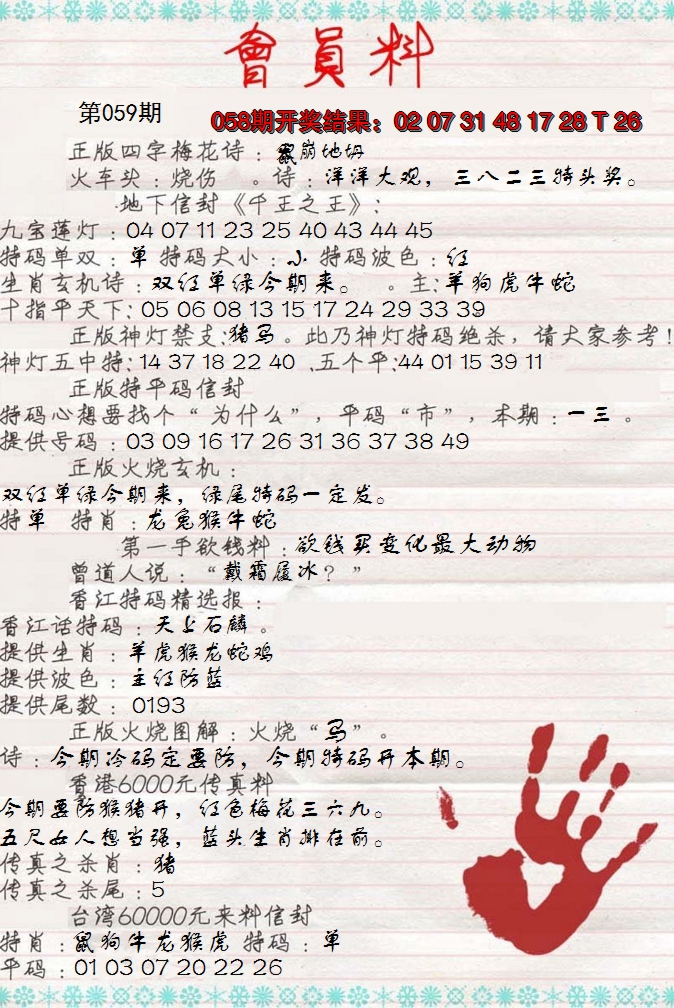 會員料
第059期
058期开奖结果：02 07 31 48 17 28 T 26
正版四字梅花诗：鼠崩地坍
火车头：烧伤 。诗：洋洋大观，三八二三特头奖。
地下信封《千王之王》：
九宝莲灯：04 07 11 23 25 40 43 44 45
特码单双：单 特码大小：小 特码波色：红
生肖玄机诗：双红单绿今期来。 。主:羊狗虎牛蛇
十指平天下: 05 06 08 13 15 17 24 29 33 39
正版神灯禁支:猪马。此乃神灯特码绝杀，请大家参考!
神灯五中特:14 37 18 22 40 、五个平:44 01 15 39 11
正版特平码信封
特码心想要找个“为什么”，平码“市”，本期：一三 。
提供号码：03 09 16 17 26 31 36 37 38 49
正版火烧玄机：
双红单绿今期来，绿尾特码一定发。
特单 特肖：龙兔猴牛蛇
第一手欲钱料：欲钱买变化最大动物
曾道人说：“戴霜履冰？”
香江特码精选报：
香江话特码：天上石麟 。
提供生肖：羊虎猴龙蛇鸡
提供波色：主红防蓝
提供尾数： 0193
正版火烧图解：火烧“马”。
诗：今期冷码定要防，今期特码开本期。
香港6000元传真料
今期要防猴猪开，红色梅花三六九。
五尺女人想当强，蓝头生肖排在前。
传真之杀肖：猪
传真之杀尾：5
台湾60000元来料信封
特肖：鼠狗牛龙猴虎 特码：单
平码：01 03 07 20 22 26